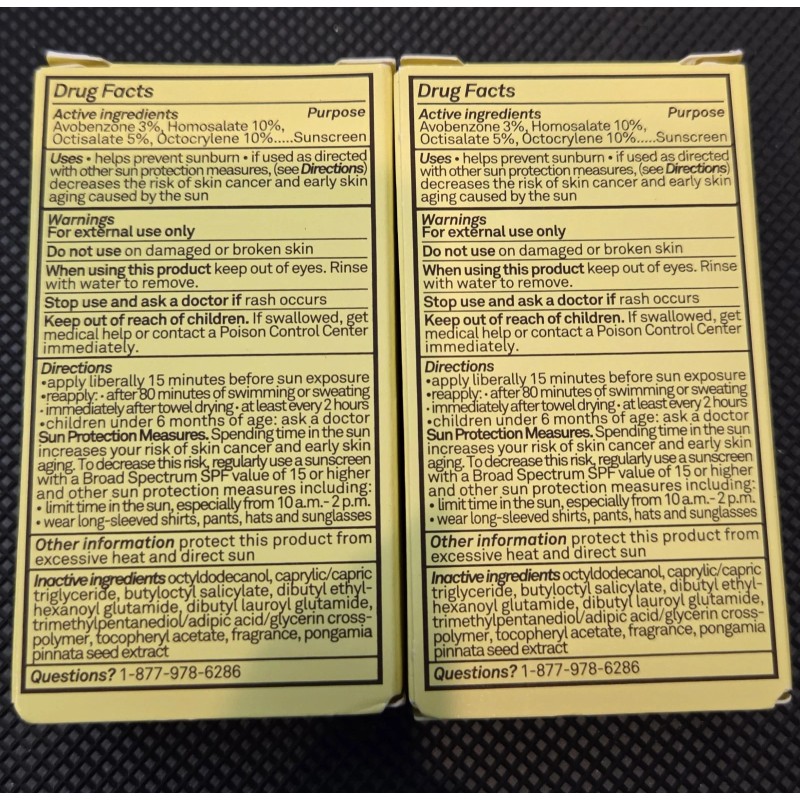 Drug Facts
Active ingredients Purpose
Avobenzone 3%, Homosalate 10%,
Octisalate 5%, Octocrylene 10%.....Sunscreen
Uses • helps prevent sunburn • if used as directed
with other sun protection measures, (see Directions)
decreases the risk of skin cancer and early skin
aging caused by the sun
Warnings
For external use only
Do not use on damaged or broken skin
When using this product keep out of eyes. Rinse
with water to remove.
Stop use and ask a doctor if rash occurs
Keep out of reach of children. If swallowed, get
medical help or contact a Poison Control Center
immediately.
Directions
•apply liberally 15 minutes before sun exposure
•reapply: • after 80 minutes of swimming or sweating
• immediately after towel drying • at least every 2 hours
•children under 6 months of age: ask a doctor
Sun Protection Measures. Spending time in the sun
increases your risk of skin cancer and early skin
aging. To decrease this risk, regularly use a sunscreen
with a Broad Spectrum SPF value of 15 or higher
and other sun protection measures including:
• limit time in the sun, especially from 10 a.m.- 2 p.m.
• wear long-sleeved shirts, pants, hats and sunglasses
Other information protect this product from
excessive heat and direct sun
Inactive ingredients octyldodecanol, caprylic/capric
triglyceride, butyloctyl salicylate, dibutyl ethyl-
hexanoyl glutamide, dibutyl lauroyl glutamide,
trimethylpentanediol/adipic acid/glycerin cross-
polymer, tocopheryl acetate, fragrance, pongamia
pinnata seed extract
Questions? 1-877-978-6286
Drug Facts
Active ingredients Purpose
Avobenzone 3%, Homosalate 10%,
Octisalate 5%, Octocrylene 10%.....Sunscreen
Uses • helps prevent sunburn • if used as directed
with other sun protection measures, (see Directions)
decreases the risk of skin cancer and early skin
aging caused by the sun
Warnings
For external use only
Do not use on damaged or broken skin
When using this product keep out of eyes. Rinse
with water to remove.
Stop use and ask a doctor if rash occurs
Keep out of reach of children. If swallowed, get
medical help or contact a Poison Control Center
immediately.
Directions
•apply liberally 15 minutes before sun exposure
•reapply: • after 80 minutes of swimming or sweating
• immediately after towel drying • at least every 2 hours
•children under 6 months of age: ask a doctor
Sun Protection Measures. Spending time in the sun
increases your risk of skin cancer and early skin
aging. To decrease this risk, regularly use a sunscreen
with a Broad Spectrum SPF value of 15 or higher
and other sun protection measures including:
• limit time in the sun, especially from 10 a.m.- 2 p.m.
• wear long-sleeved shirts, pants, hats and sunglasses
Other information protect this product from
excessive heat and direct sun
Inactive ingredients octyldodecanol, caprylic/capric
triglyceride, butyloctyl salicylate, dibutyl ethyl-
hexanoyl glutamide, dibutyl lauroyl glutamide,
trimethylpentanediol/adipic acid/glycerin cross-
polymer, tocopheryl acetate, fragrance, pongamia
pinnata seed extract
Questions? 1-877-978-6286